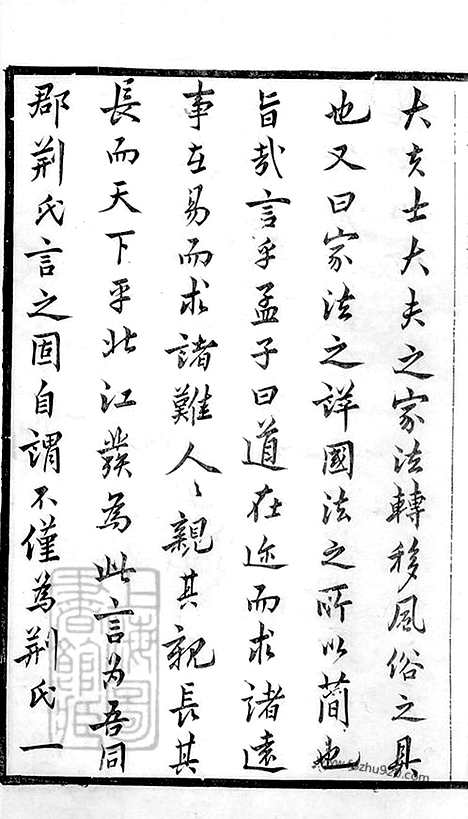 大夫士大夫之家法轉移風俗之具
也又曰家法之詳國法之所以蕳也
旨哉言乎孟子曰道在迩而求諸遠
事在易而求諸難人〻親其親長其
長而天下平北江發為此言为吾同
郡荆氏言之固自謂不僅為荆氏一
上海圖書館藏